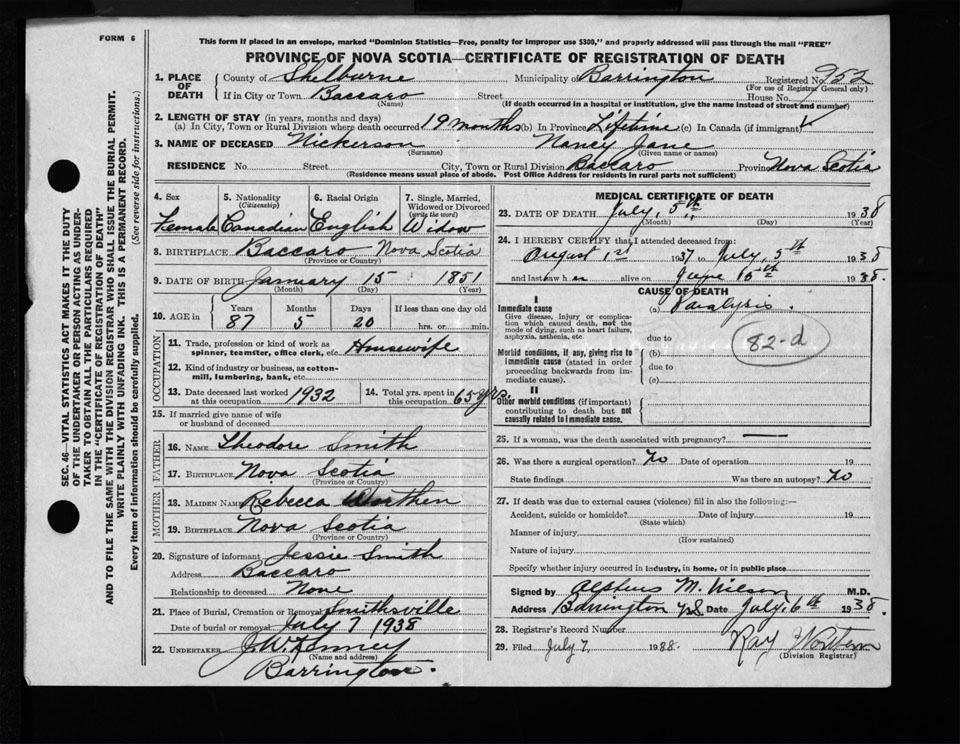 FORM 6
This form if placed in an envelope, marked "Dominion Statistics—Free, penalty for improper use $300," and properly addressed will pass through the mail "FREE"
PROVINCE OF NOVA SCOTIA—CERTIFICATE OF REGISTRATION OF DEATH
1. PLACE OF DEATH County of Shelburne Municipality of Barrington Registered No. 952
(For use of Registrar General only)
If in City or Town Baccaro Street House No.
(Name) (If death occurred in a hospital or institution, give the name instead of street and number)
2. LENGTH OF STAY (in years, months and days)
(a) In City, Town or Rural Division where death occurred 19 months (b) In Province Lifetime (c) In Canada (if immigrant)
3. NAME OF DECEASED Nickerson Nancy Jane
(Surname) (Given name or names)
RESIDENCE No. Street City, Town or Rural Division Baccaro Province Nova Scotia
(Residence means usual place of abode. Post Office Address for residents in rural parts not sufficient)
4. Sex 5. Nationality (Citizenship) 6. Racial Origin 7. Single, Married, Widowed or Divorced (write the word)
Female Canadian English Widow
8. BIRTHPLACE Baccaro Nova Scotia
(Province or Country)
9. DATE OF BIRTH January 15 1851
(Month) (Day) (Year)
10. AGE in Years Months Days If less than one day old
87 5 20 hrs. or min.
OCCUPATION
11. Trade, profession or kind of work as spinner, teamster, office clerk, etc. Housewife
12. Kind of industry or business, as cotton-mill, lumbering, bank, etc.
13. Date deceased last worked at this occupation 1932 14. Total yrs. spent in this occupation 65 yrs.
15. If married give name of wife or husband of deceased
FATHER
16. NAME Theodore Smith
17. BIRTHPLACE Nova Scotia
(Province or Country)
MOTHER
18. MAIDEN NAME Rebecca Worthen
19. BIRTHPLACE Nova Scotia
(Province or Country)
20. Signature of informant Jessie Smith
Address Baccaro
Relationship to deceased None
21. Place of Burial, Cremation or Removal Smithsville
Date of burial or removal July 7 1938
22. UNDERTAKER J. W. Kenney
(Name and address)
Barrington.
MEDICAL CERTIFICATE OF DEATH
23. DATE OF DEATH July, 5th 1938
(Month) (Day)
24. I HEREBY CERTIFY that I attended deceased from:
August 1st 1937 to July, 5th 1938
and last saw her alive on June 15th 1938.
CAUSE OF DEATH
I
Immediate cause (a) Paralysis.
Give disease, injury or complication which caused death, not the mode of dying, such as heart failure, asphyxia, asthenia, etc.
due to
82-d
Morbid conditions, if any, giving rise to immediate cause (stated in order proceeding backwards from immediate cause).
(b)
due to
(c)
II
Other morbid conditions (if important) contributing to death but not causally related to immediate cause.
25. If a woman, was the death associated with pregnancy?
26. Was there a surgical operation? No Date of operation 19
State findings Was there an autopsy? No
27. If death was due to external causes (violence) fill in also the following:—
Accident, suicide or homicide? Date of injury 19
(State which)
Manner of injury
(How sustained)
Nature of injury
Specify whether injury occurred in industry, in home, or in public place
Signed by Alpheus M. Wilson M.D.
Address Barrington N.S. Date July, 6th 1938.
28. Registrar's Record Number
29. Filed July 7, 1938. Ray
(Division Registrar)
SEC. 46—VITAL STATISTICS ACT MAKES IT THE DUTY
OF THE UNDERTAKER OR PERSON ACTING AS UNDER-
TAKER TO OBTAIN ALL THE PARTICULARS REQUIRED
IN THE "CERTIFICATE OF REGISTRATION OF DEATH"
AND TO FILE THE SAME WITH THE DIVISION REGISTRAR WHO SHALL ISSUE THE BURIAL PERMIT.
WRITE PLAINLY WITH UNFADING INK. THIS IS A PERMANENT RECORD.
Every item of information should be carefully supplied. (See reverse side for instructions.)